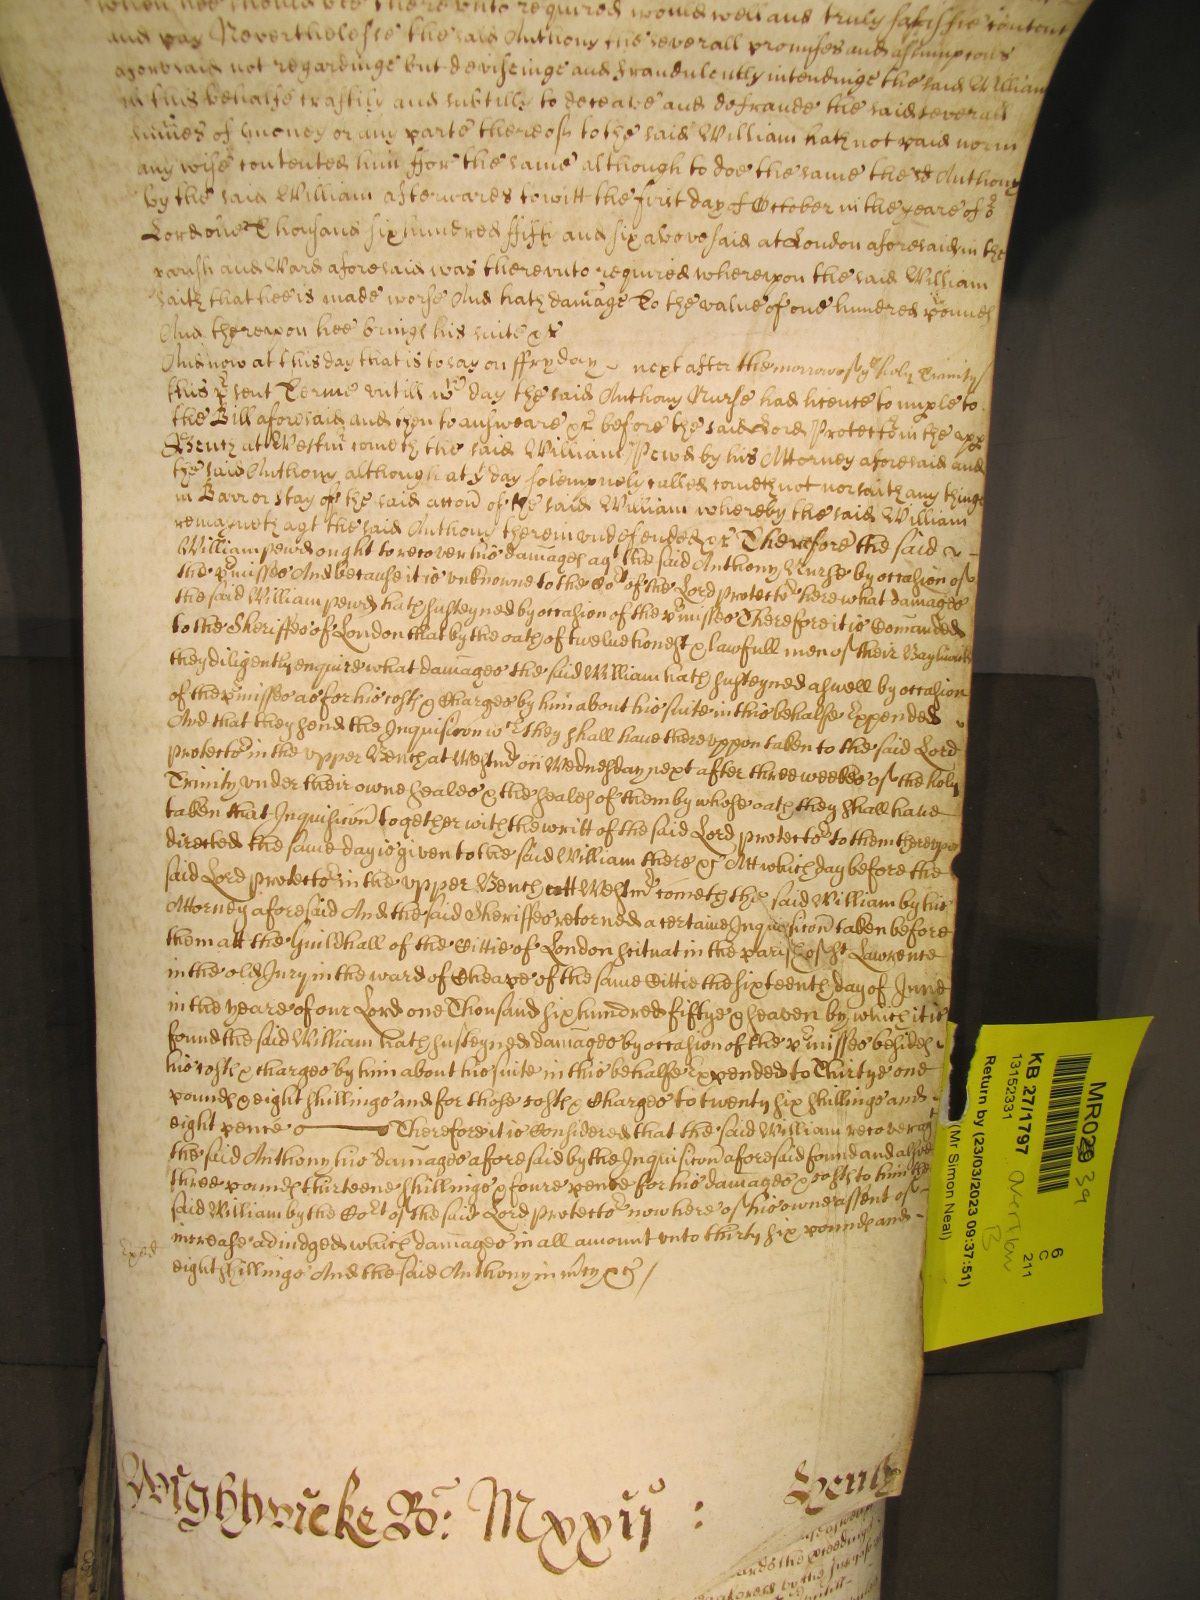 when hee should bee therevnto required would well and truly satisfie content
and pay Neverthelesse the said Anthony the severall promises and assumptions
aforesaid not regardinge but deviseinge and fraudulently intendinge the said William
in this behalfe craftily and subtilly to deceave and defraude the said severall
summes of money or any parte thereof to the said William hath not paid nor in
any wise contented him ffor the same although to doe the same the sd Anthony
by the said William afterwards to witt the first day of October in the yeare of
Lord one Thousand six hundred fifty and six abovesaid at London aforesaid in the
parish and Ward aforesaid was therevnto required wherevpon the said William
saith that hee is made worse And hath damage To the value of one hundred pounds
And therevpon hee brings his suite &c
And now at this day that is to say on ffryday next after the morrow of ye holy Trinity
this psent Terme vntill wch day the said Anthony Nurse had licence to imple to
the Bill aforesaid and then to answeare &c before the said Lord Protector in the vpp
Bench at Westmr cometh the said William Pewd by his Attorney aforesaid and
the said Anthony although at yt day solempnely called cometh not nor saith any thinge
in Barr or stay of the said accon of the said William whereby the said William
remayneth agt the said Anthony therein vndefended &c Therefore the said
William pewd ought to recover his damages agt the said Anthony Nurse by occasion of
the pmisses And because it is vnknowne to the Cort of the Lord Protector here what damages
the said William pewd hath susteyned by occasion of the pmisses Therefore it is Comanded
to the Sheriffes of London that by the oath of twelve honest & lawfull men of their Bayliwick
they diligently enquire what damages the said William hath susteyned aswell by occasion
of the pmisses as for his costs & Charges by him about his suite in this behalfe Expended
And that they send the Inquisicon wch they shall have therevppon taken to the said Lord
Protector in the vpper Bench at Westmr on Wednesday next after three weekes of the holy
Trinity vnder their owne seales & the seales of them by whose oath they shall have
taken that Inquisicon together with the writt of the said Lord Protector to them therevpon
directed the same day is given to the said William there &c Att which day before the
said Lord Protector in the vpper Bench att Westmr cometh the said William by his
Attorney aforesaid And the said Sheriffes retorned a certaine Inquisicon taken before
them att the Guildhall of the Cittie of London scituat in the parish of St Lawrence
in the old Jury in the ward of Cheape of the same Cittie the sixteenth day of June
in the yeare of our Lord one Thousand six hundred fiftye & seaven by which it is
found the said William hath susteyned damages by occasion of the pmisses besides
his costs & charges by him about his suite in this behalfe Expended to Thirtye one
pounds & eight shillings and for those costs & Charges to twenty six shillings and
eight pence Therefore it is Considered that the said William recover agt
the said Anthony his damages aforesaid by the Inquisicon aforesaid found and alsoe
three pounds thirteene shillings & foure pence for his damages & costs to him the
said William by the Cort of the said Lord Protector now here of his owne assent of
increase adiudged which damages in all amount vnto thirty six pounds and
eight shillings And the said Anthony in mcy &c /
Wightwicke Ro: Mxxij :
MR02 39
KB 27/1797
13152331
6
C
211
Overflow
B
Return by (23/03/2023 09:37:51)
(Mr Simon Neal)